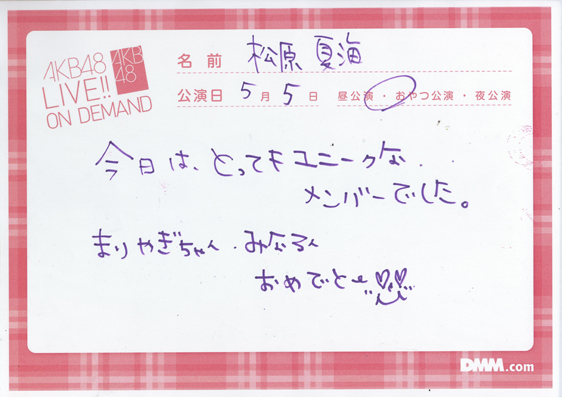 AKB48
LIVE!!
ON DEMAND
AKB
48
名前 松原夏海
公演日 5月5日 昼公演・おやつ公演・夜公演
今日は、とってもユニークな
メンバーでした。
まりやぎちゃん・みなるん
おめでとー
DMM.com